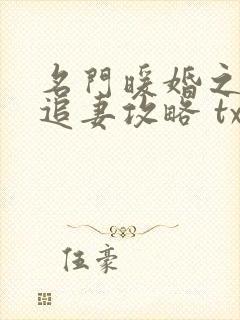 名門暖婚之
追妻攻略 tx
伍豪